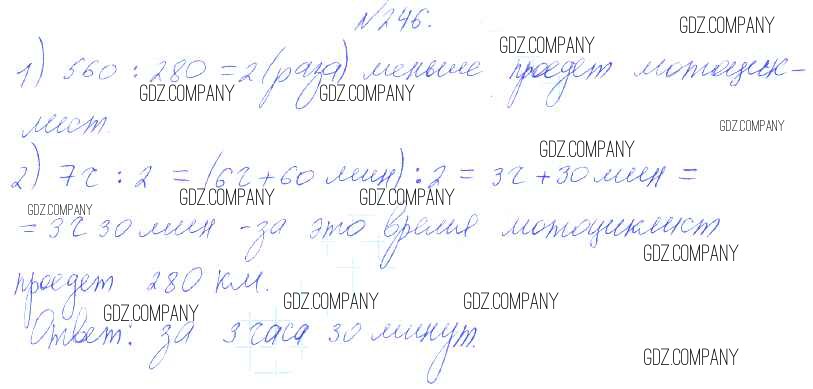 №246. GDZ.COMPANY
GDZ.COMPANY
1) 560 : 280 = 2 (раза) меньше проедет мотоцик-
GDZ.COMPANY GDZ.COMPANY
лист. GDZ.COMPANY
GDZ.COMPANY
2) 7ч : 2 = (6ч + 60 мин) : 2 = 3ч + 30 мин =
GDZ.COMPANY GDZ.COMPANY GDZ.COMPANY
= 3ч 30 мин - за это время мотоциклист
GDZ.COMPANY
проедет 280 км.
GDZ.COMPANY GDZ.COMPANY GDZ.COMPANY
Ответ: за 3 часа 30 минут.
GDZ.COMPANY